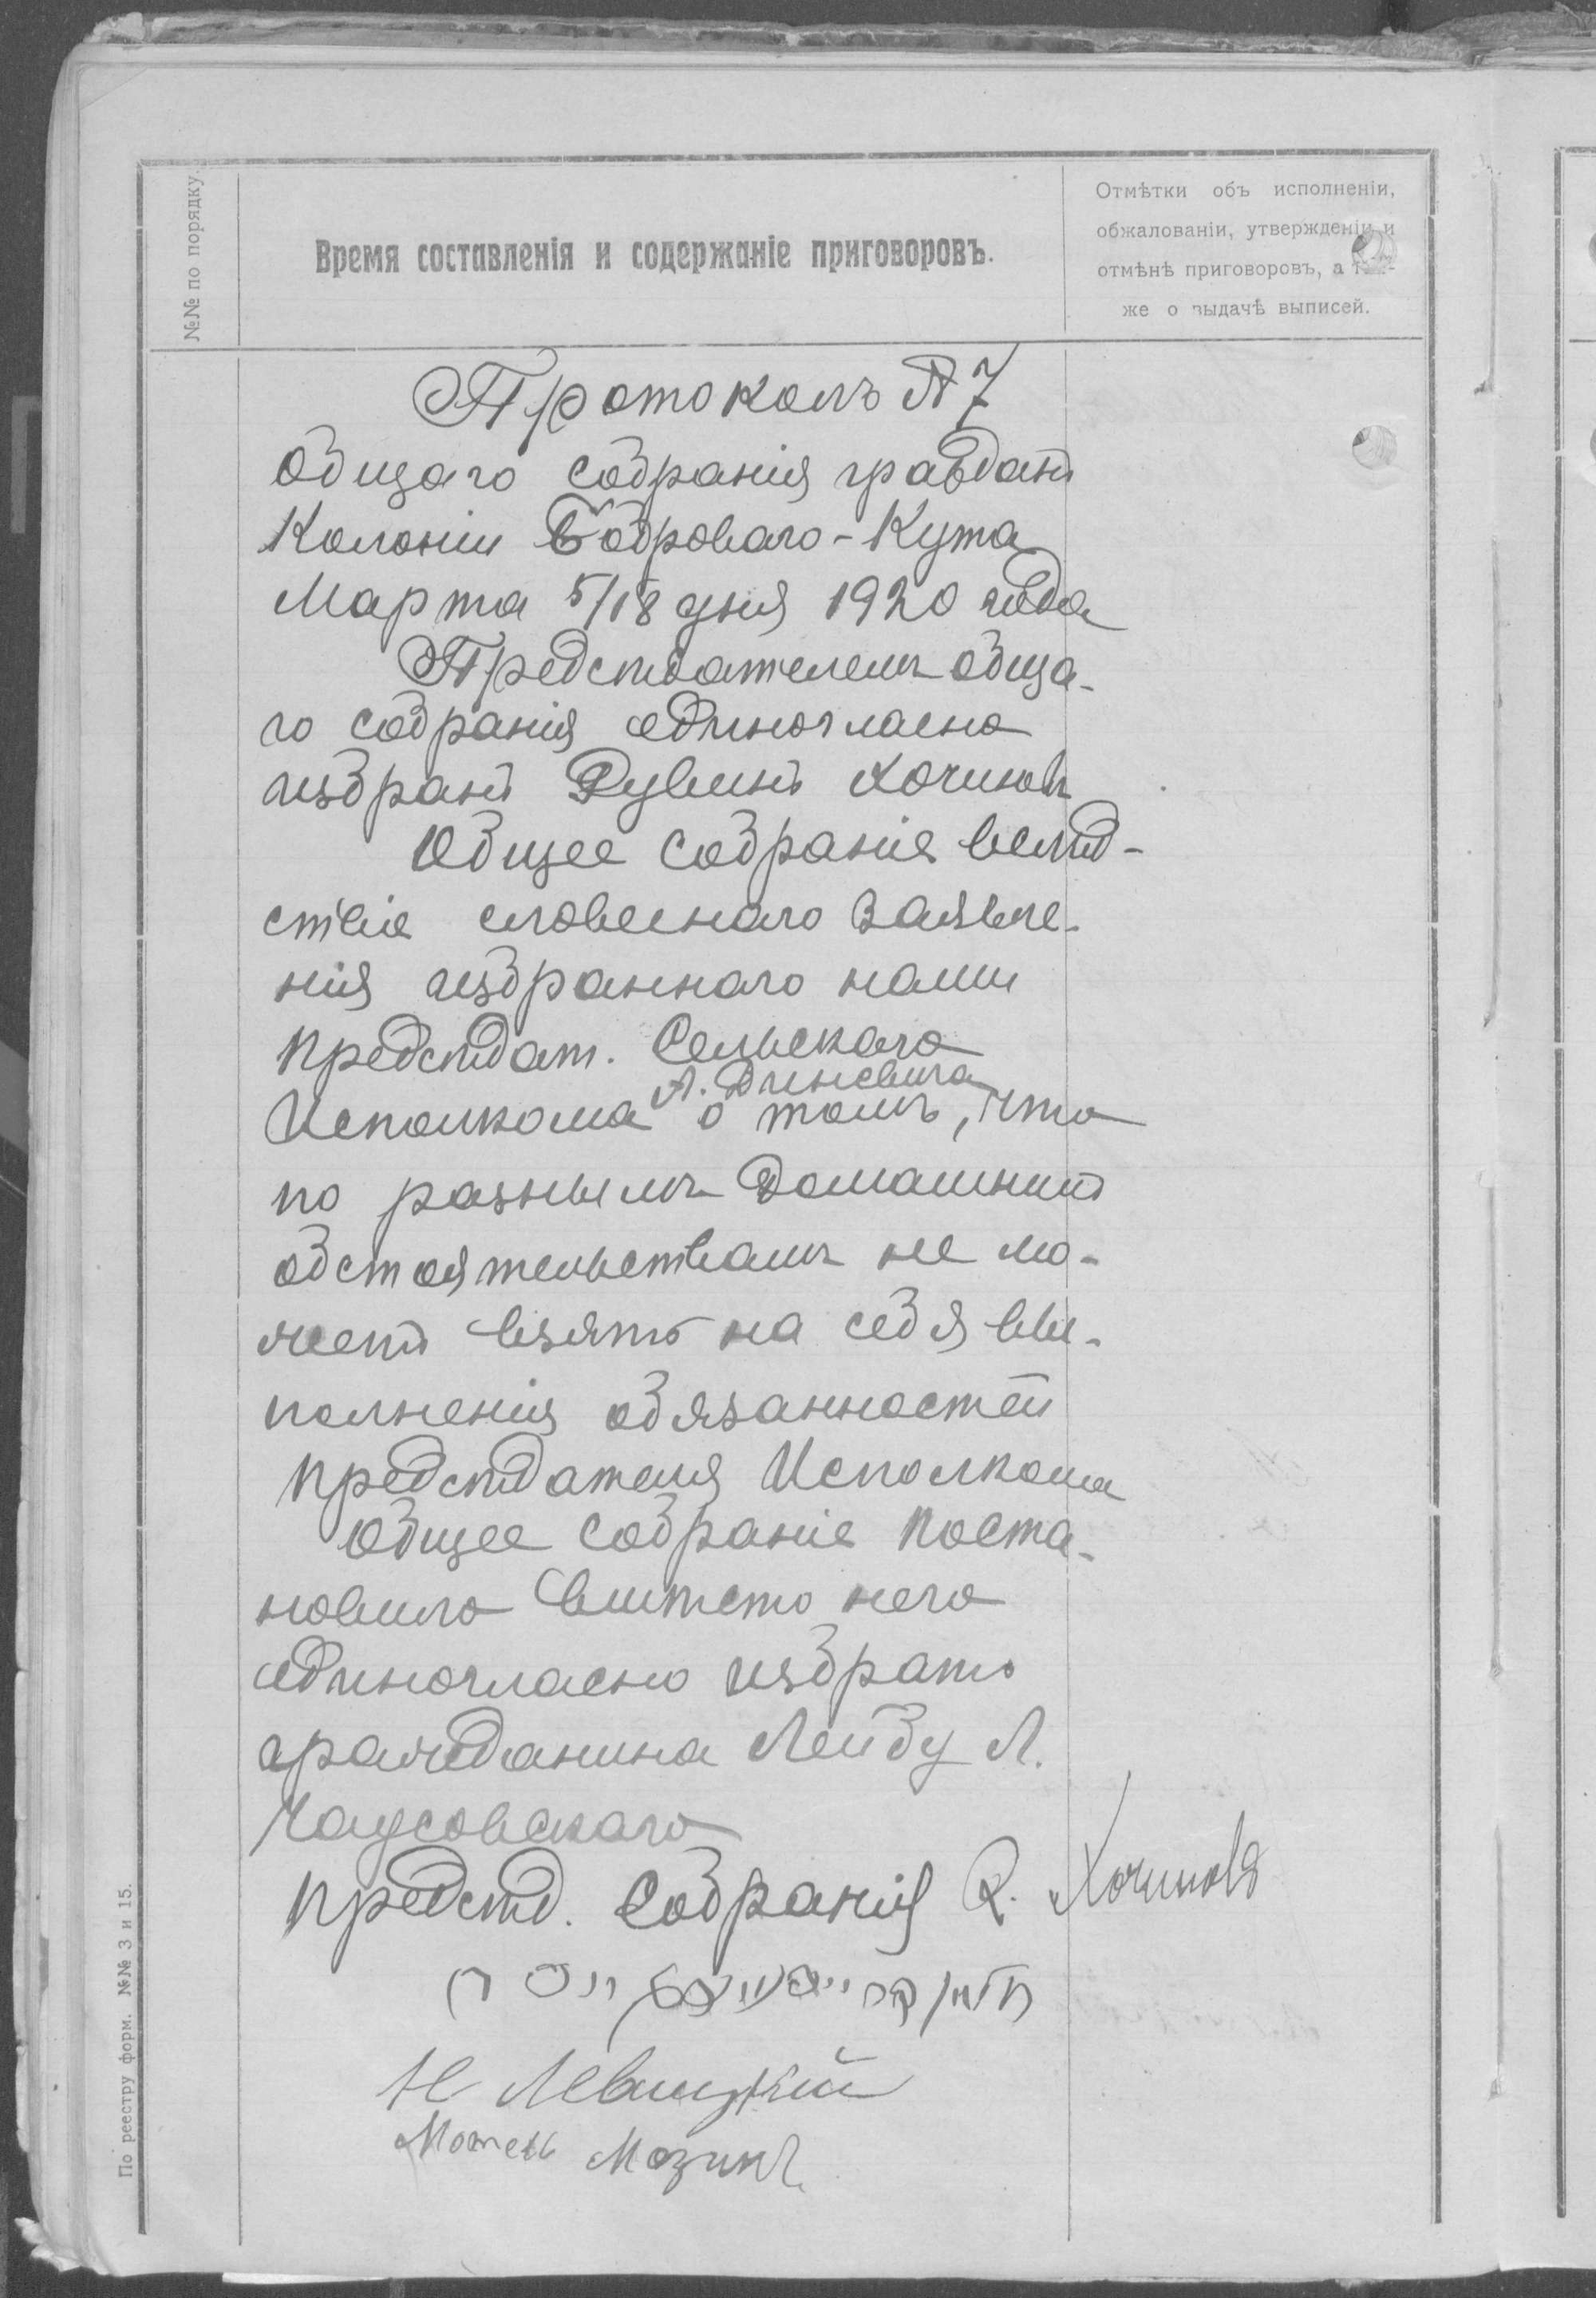 №№ по порядку.
Время составленія и содержаніе приговоровъ.
Отмѣтки объ исполненіи,
обжалованіи, утвержденіи и
отмѣнѣ приговоровъ, а так-
же о выдачѣ выписей.
Протоколъ № 7
Общаго собранія граждан
Колоніи Боброваго-Кута
Марта 5/18 дня 1920 года
Предсѣдателемъ обща-
го собранія единогласно
избранъ Рувинъ Хочиновъ
Общее собраніе вслѣд-
ствіе словеснаго заявле-
нія избраннаго нами
предсѣдат. Сельскаго
А. Диневича
Исполкома о томъ, что
по разнымъ домашнимъ
обстоятельствамъ не мо-
жетъ взять на себя вы-
полненія обязанностей
предсѣдателя Исполкома
Общее собраніе поста-
новило вмѣсто него
единогласно избрать
гражданина Лейбу Л.
Чаусовскаго
предсѣд. Собранія Р. Хочиновъ
Н Левицкій
Мотель Мазинъ
По реестру форм. №№ 3 и 15.